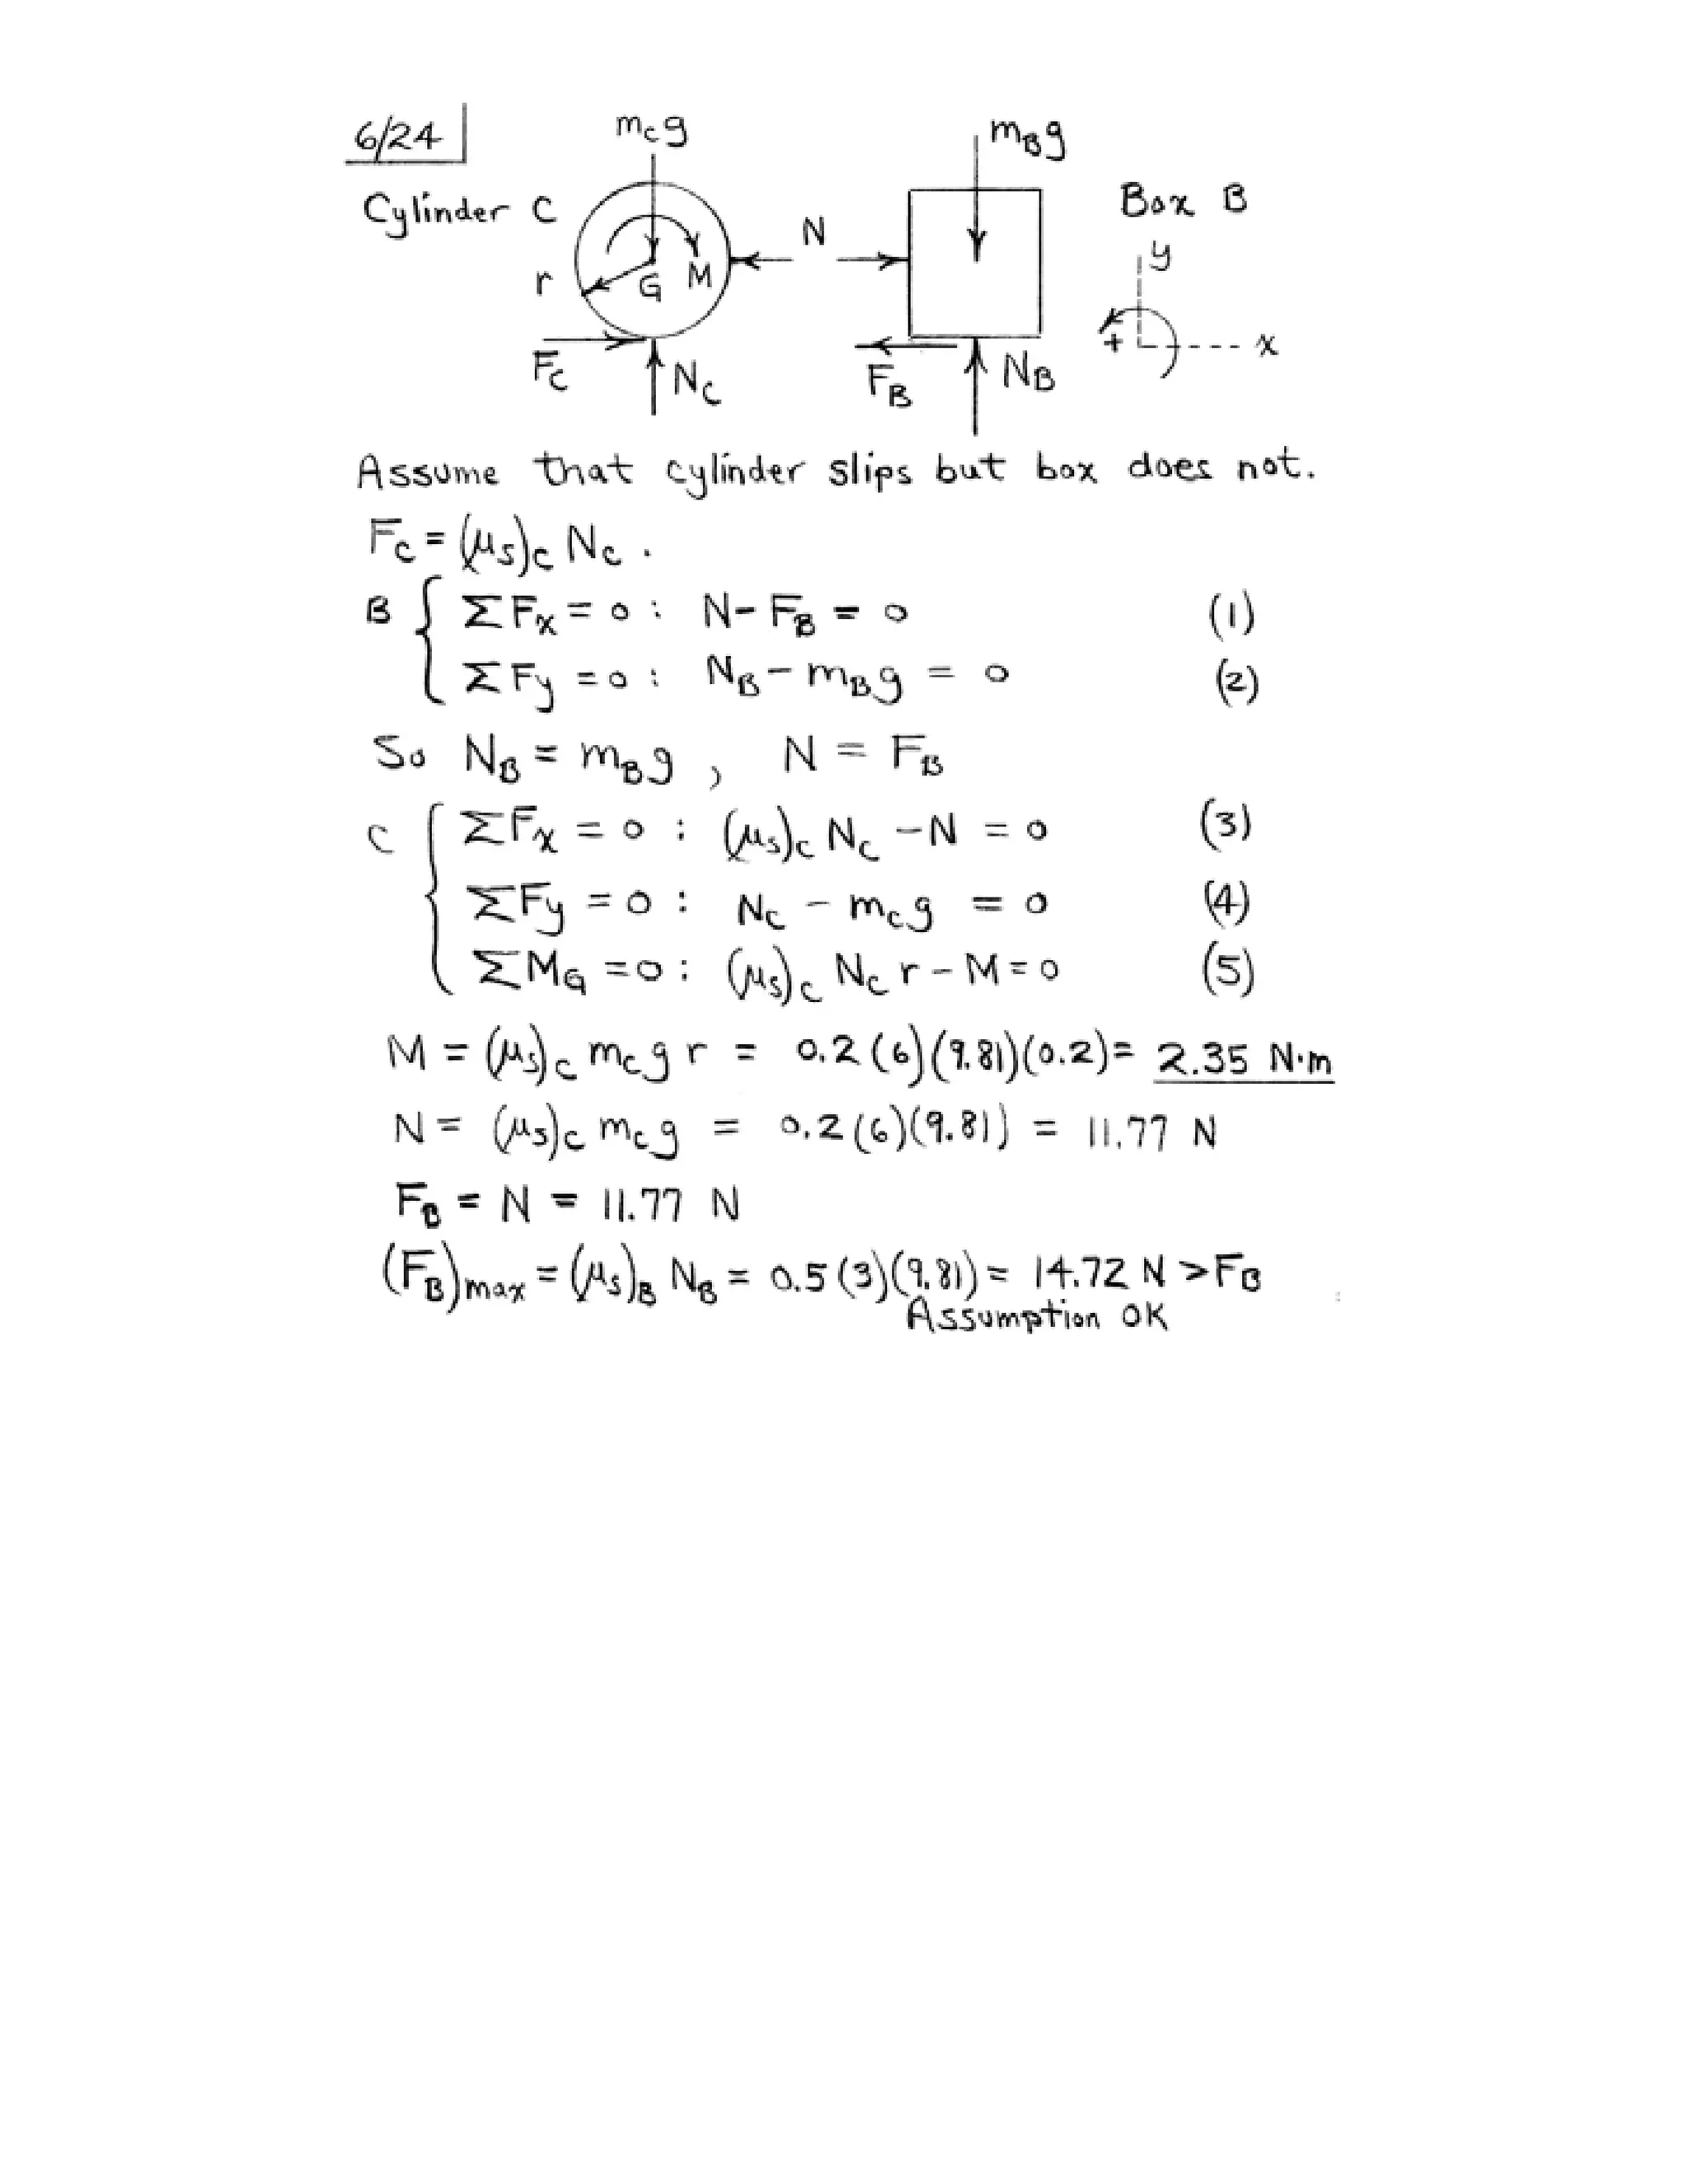 6/24
m_C g
m_B g
Cylinder C
Box B
N
y
r
G
M
+
x
F_C
N_C
F_B
N_B
Assume that cylinder slips but box does not.
F_C = (μ_s)_C N_C .
B { ΣF_x = 0 : N - F_B = 0 (1)
ΣF_y = 0 : N_B - m_B g = 0 (2)
So N_B = m_B g , N = F_B
C { ΣF_x = 0 : (μ_s)_C N_C - N = 0 (3)
ΣF_y = 0 : N_C - m_C g = 0 (4)
ΣM_G = 0 : (μ_s)_C N_C r - M = 0 (5)
M = (μ_s)_C m_C g r = 0.2 (6)(9.81)(0.2) = 2.35 N·m
N = (μ_s)_C m_C g = 0.2 (6)(9.81) = 11.77 N
F_B = N = 11.77 N
(F_B)_max = (μ_s)_B N_B = 0.5 (3)(9.81) = 14.72 N > F_B
Assumption OK